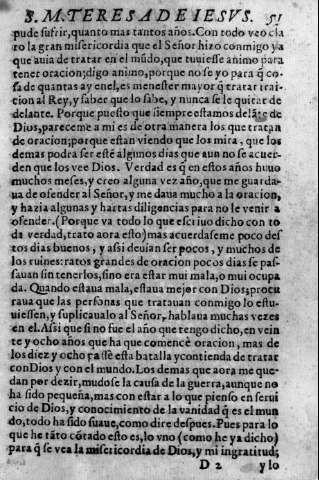 S. M. TERESA DE IESVS. 51
pude sufrir, quanto mas tantos años. Con todo veo cla
ro la gran misericordia que el Señor hizo conmigo ya
que auia de tratar en el mũdo, que tuuiesse animo para
tener oracion; digo animo, porque no se yo para q̃ co
sa de quantas ay en el, es menester mayor q̃ tratar trai
cion al Rey, y saber que lo sabe, y nunca se le quitar de
delante. Porque puesto que siempre estamos delãte de
Dios, pareceme a mi es de otra manera los que tratan
de oracion; porque estan viendo que los mira, que los
demas podra ser estè algunos dias que aun no se acuer-
den que los vee Dios. Verdad es q̃ en estos años huuo
muchos meses, y creo alguna vez año, que me guarda-
ua de ofender al Señor, y me daua mucho a la oracion,
y hazia algunas y hartas diligencias para no le venir a
ofender. (Porque va todo lo que escriuo dicho con to
da verdad, trato aora esto) mas acuerdaseme poco des
tos dias buenos, y assi deuian ser pocos, y muchos de
los ruines: ratos grandes de oracion pocos dias se pas-
sauan sin tenerlos, sino era estar mui mala, o mui ocupa
da. Quando estaua mala, estaua mejor con Dios; procu
raua que las personas que tratauan conmigo lo estu-
uiessen, y suplicaualo al Señor, hablaua muchas vezes
en el. Assi que si no fue el año que tengo dicho, en vein
te y ocho años que ha que comencè oracion, mas de
los diez y ocho passè esta batalla y contienda de tratar
con Dios y con el mundo. Los demas que aora me que-
dan por dezir, mudose la causa de la guerra, aunque no
ha sido pequeña, mas con estar a lo que pienso en serui
cio de Dios, y conocimiento de la vanidad q̃ es el mun
do, todo ha sido suaue, como dire despues. Pues para lo
que he tãto cõtado esto es, lo vno (como he ya dicho)
para q̃ se vea la misericordia de Dios, y mi ingratitud;
D 2 y lo